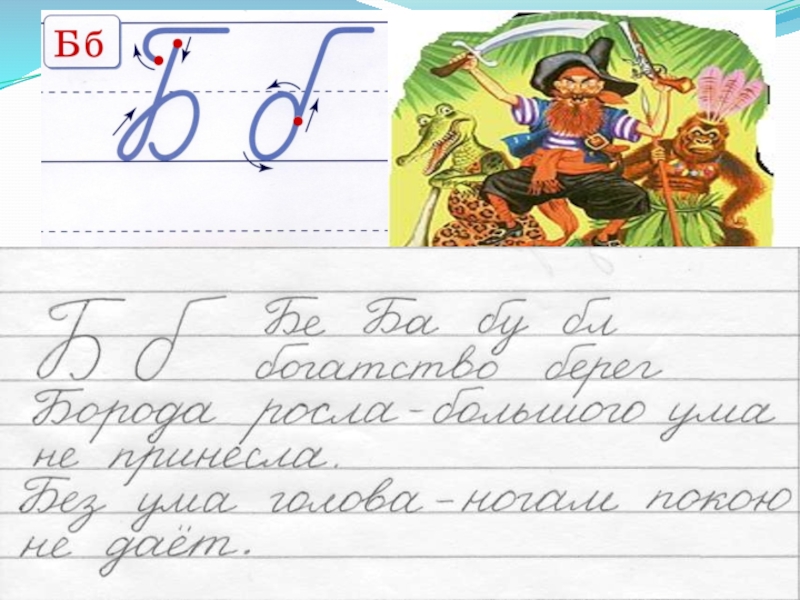 Бб
Б б
Б б Бе Ба бу бл
богатство берег
Борода росла - большого ума
не принесла.
Без ума голова - ногам покою
не даёт.